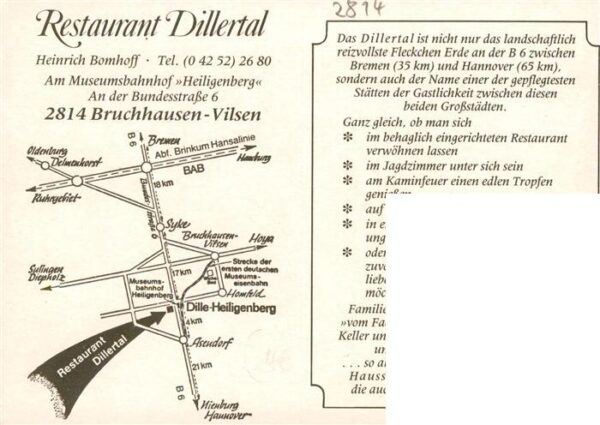 Restaurant Dillertal
Heinrich Bomhoff · Tel. (0 42 52) 26 80
Am Museumsbahnhof »Heiligenberg«
An der Bundesstraße 6
2814 Bruchhausen-Vilsen
Oldenburg
Delmenhorst
Bremen
B 6
Abf. Brinkum Hansalinie
BAB
Hamburg
Ruhrgebiet
18 km
Syke
Bruchhausen-
Vilsen
Hoya
Sulingen
Diepholz
17km
Strecke der
ersten deutschen
Museums-
eisenbahn
Museums-
bahnhof
Heiligenberg
Homfeld
Dille-Heiligenberg
4km
Restaurant
Dillertal
Asendorf
21 km
B 6
Nienburg
Hannover
2814
Das Dillertal ist nicht nur das landschaftlich
reizvollste Fleckchen Erde an der B 6 zwischen
Bremen (35 km) und Hannover (65 km),
sondern auch der Name einer der gepflegtesten
Stätten der Gastlichkeit zwischen diesen
beiden Großstädten.
Ganz gleich, ob man sich
✻ im behaglich eingerichteten Restaurant
verwöhnen lassen
✻ im Jagdzimmer unter sich sein
✻ am Kaminfeuer einen edlen Tropfen
genießen
✻ auf
✻ in e
ung
✻ oder
zuvo
liebe
möc
Familie
»vom Fa
Keller un
un
. . . so a
Hauss
die auc